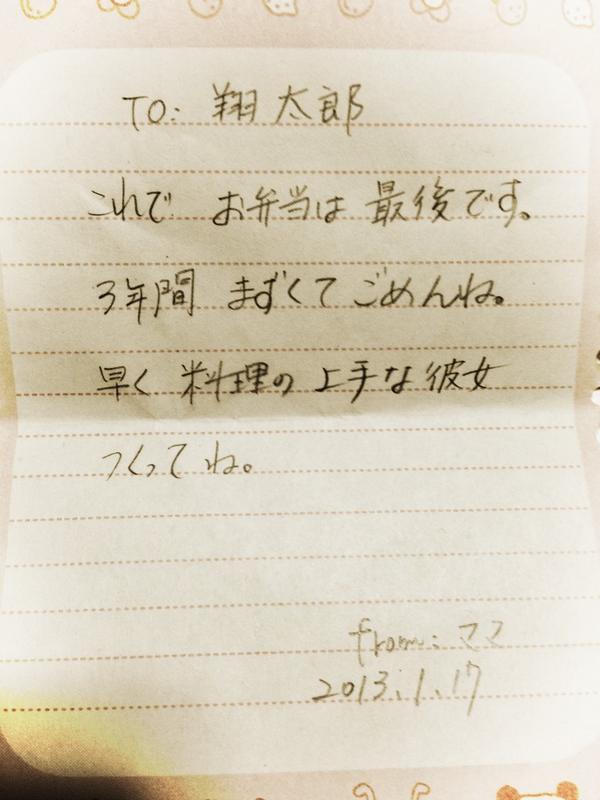 TO: 翔太郎
これで お弁当は 最後です。
3年間 まずくて ごめんね。
早く 料理の 上手な 彼女
つくってね。
from: ママ
2013.1.17